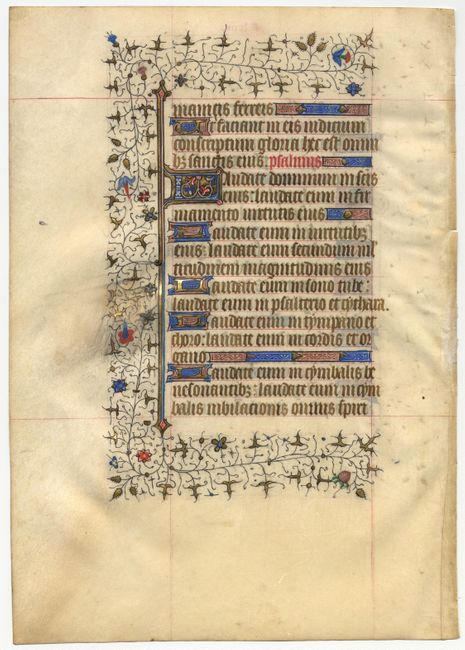 manicis ferreis
Ut faciant in eis iudicium
conscriptum gloria hec est omni
bʒ sanctis eius. psalmus
Laudate dominum in scis
eius: laudate eum in fir
mamento virtutis eius
Laudate eum in virtutibʒ
eius: laudate eum secundum ml
titudinem magnitudinis eius
Laudate eum in sono tube:
laudate eum in psalterio et cythara.
Laudate eum in tympano et
choro: laudate eum in cordis et or
gano
Laudate eum in cymbalis be
nesonantibʒ: laudate eum in cym
balis iubilacionis omnis spiri